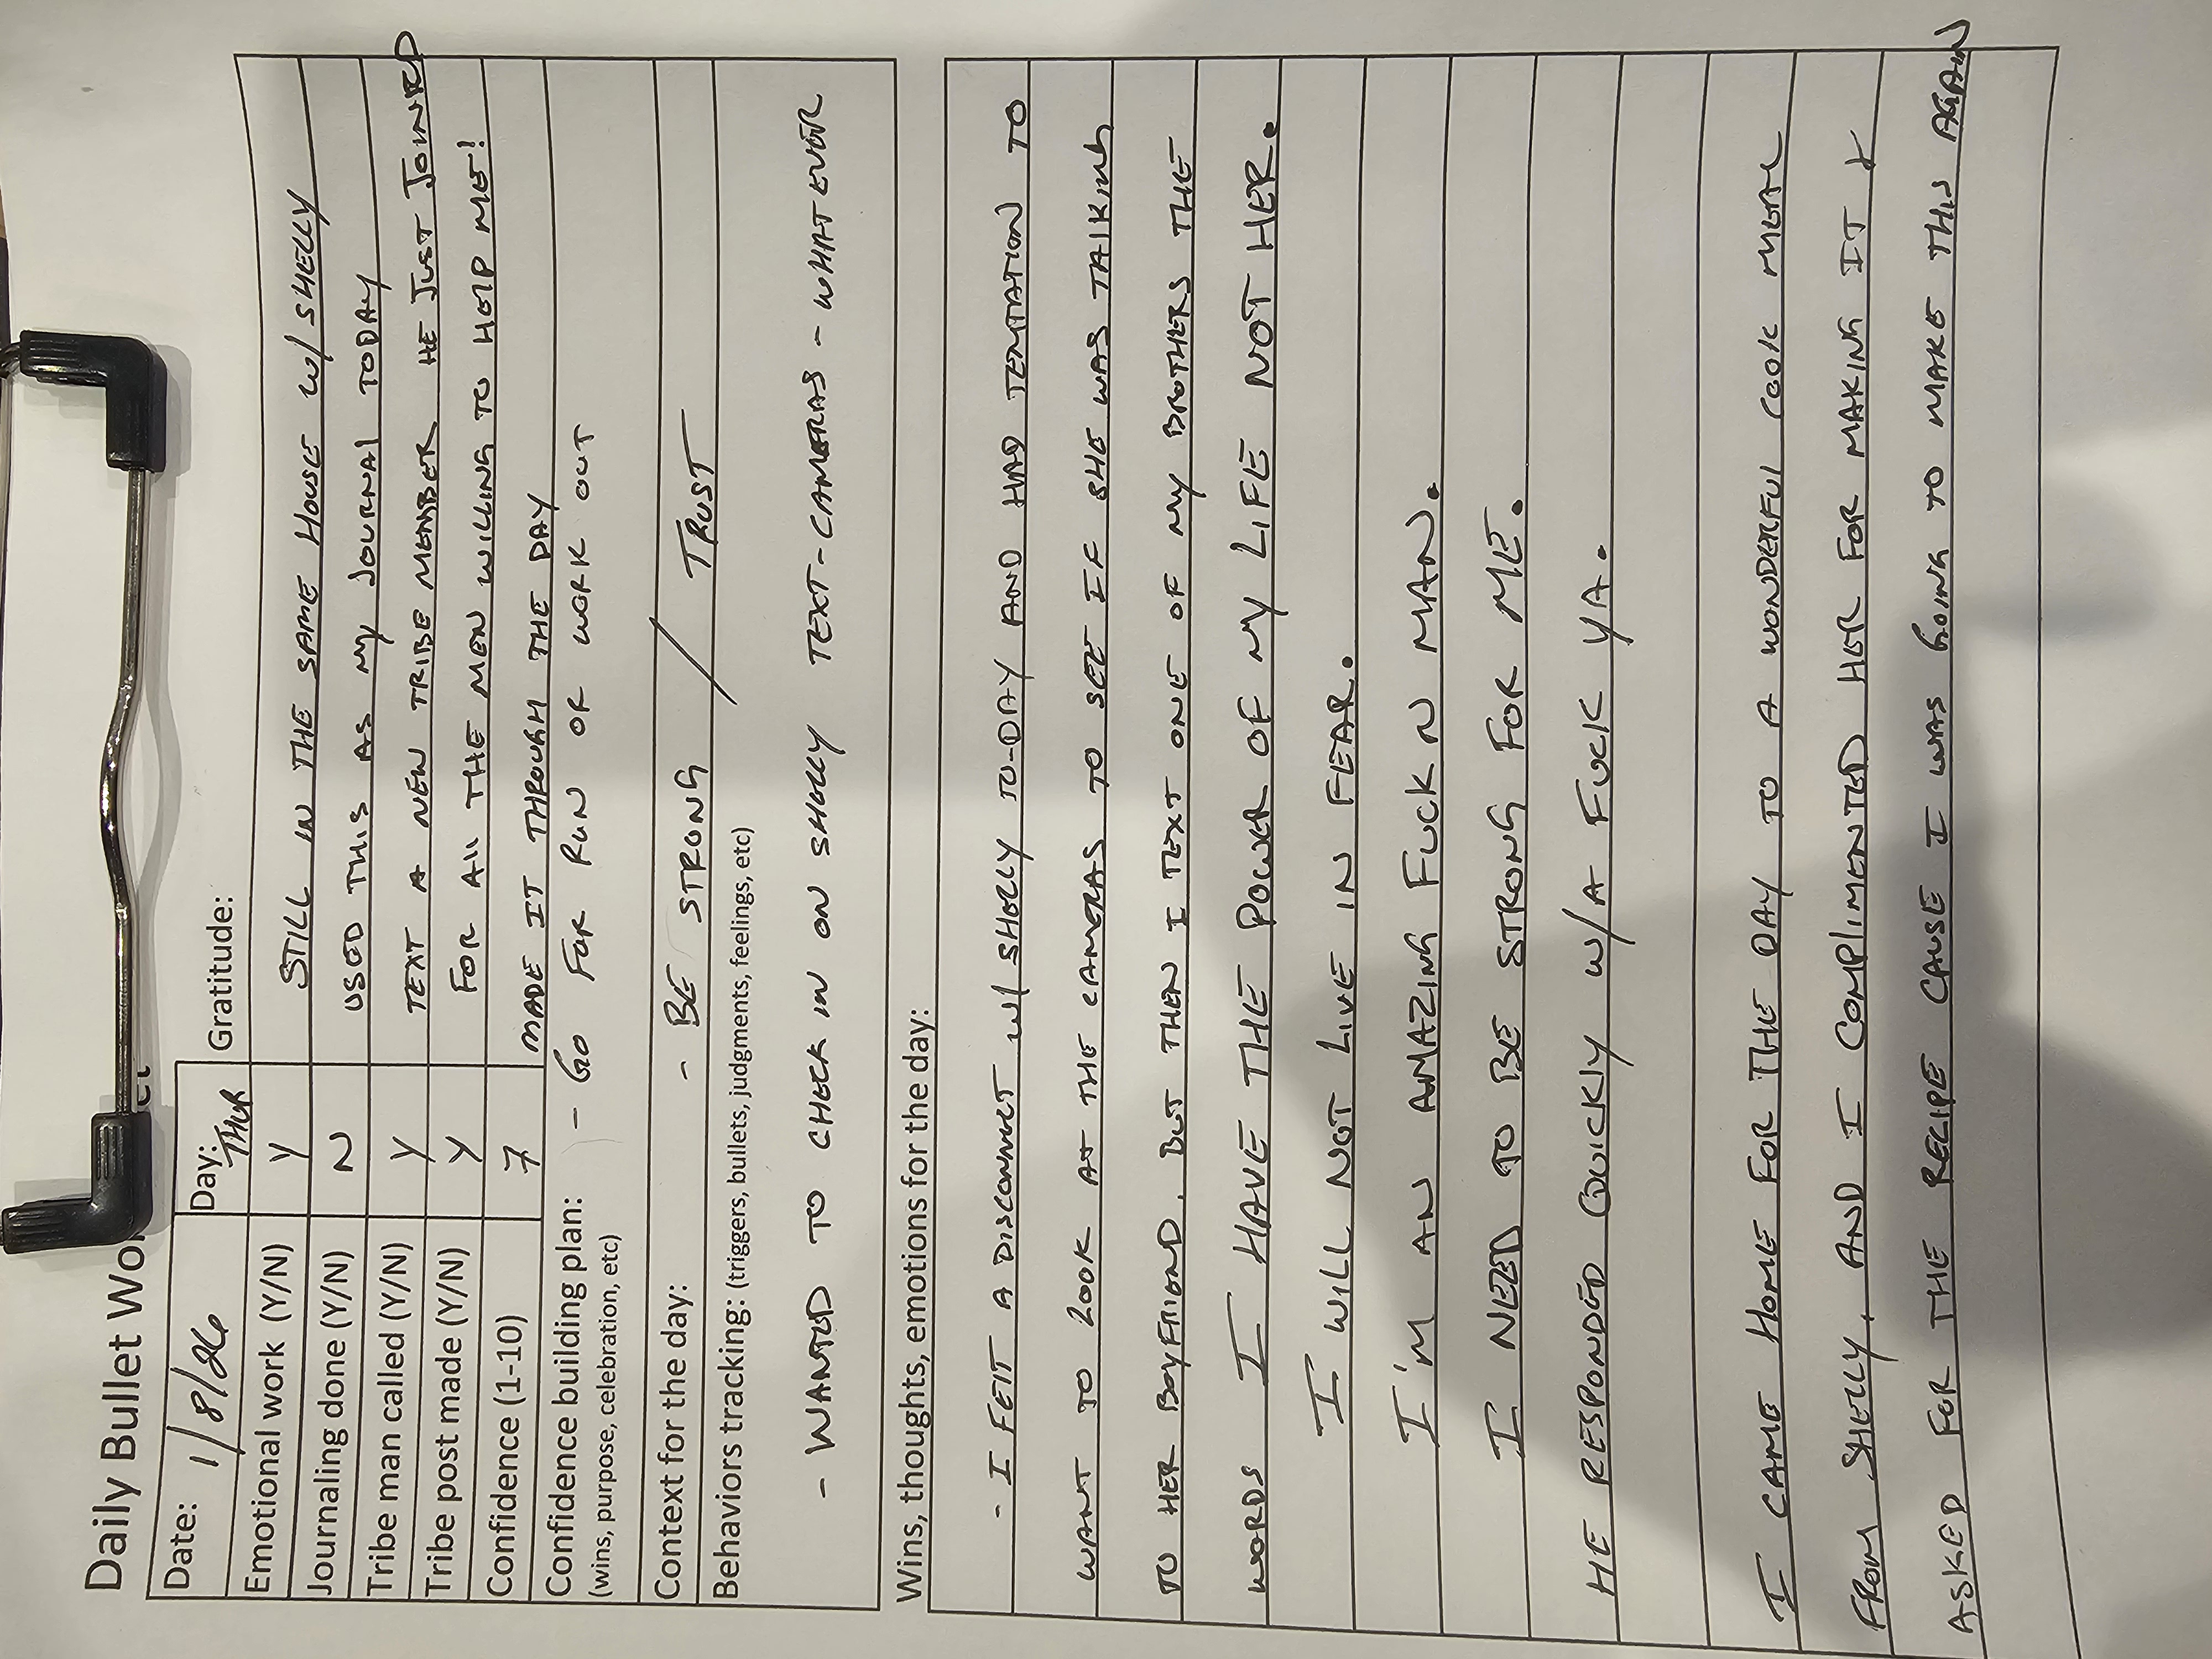 Daily Bullet Wo
Date: 1/8/26 Day: THUR Gratitude:
Emotional work (Y/N) Y STILL IN THE SAME HOUSE W/ SHELLY
Journaling done (Y/N) N USED THIS AS MY JOURNAL TODAY
Tribe man called (Y/N) Y TEXT A NEW TRIBE MEMBER HE JUST JOINED
Tribe post made (Y/N) Y FOR All THE MEN WILLING TO HElP ME!
Confidence (1-10) 7 MADE IT THROUGH THE DAY
Confidence building plan: - GO FOR RUN OR WORK OUT
(wins, purpose, celebration, etc)
Context for the day: - BE STRONG / TRUST
Behaviors tracking: (triggers, bullets, judgments, feelings, etc)
- WANTED TO CHECK IN ON SHELLY TEXT-CAMERAS - WHAT EVER
Wins, thoughts, emotions for the day:
- I FElT A DISCONNECT W/ SHELLY TO-DAY AND HAD TEMTATION TO
WANT TO LOOK AT THE CAMERAS TO SEE IF SHE WAS TAlKING
TO HER BOYFRIEND. BUT THEN I TEXT ONE OF MY BROTHERS THE
WORDS I HAVE THE POWER OF MY LIFE NOT HER.
I WILL NOT LIVE IN FEAR.
I'M AN AMAZING FUCK N MAN.
I NEED TO BE STRONG FOR ME.
HE RESPONDED QUICKLY W/A FUCK YA.
I CAME HOME FOR THE DAY TO A WONDERFUl COOK MEAL
FROM SHELLY, AND I COMPlIMENTED HER FOR MAKING IT &
ASKED FOR THE RECIPE CAUSE I WAS GOING TO MAKE THIS AGAIN